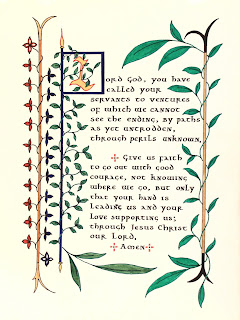 Lord God, you have
called your
servants to ventures
of which we cannot
see the ending, by paths
as yet untrodden,
through perils unknown.
Give us faith
to go out with good
courage, not knowing
where we go, but only
that your hand is
leading us and your
love supporting us;
through Jesus Christ
our Lord,
Amen